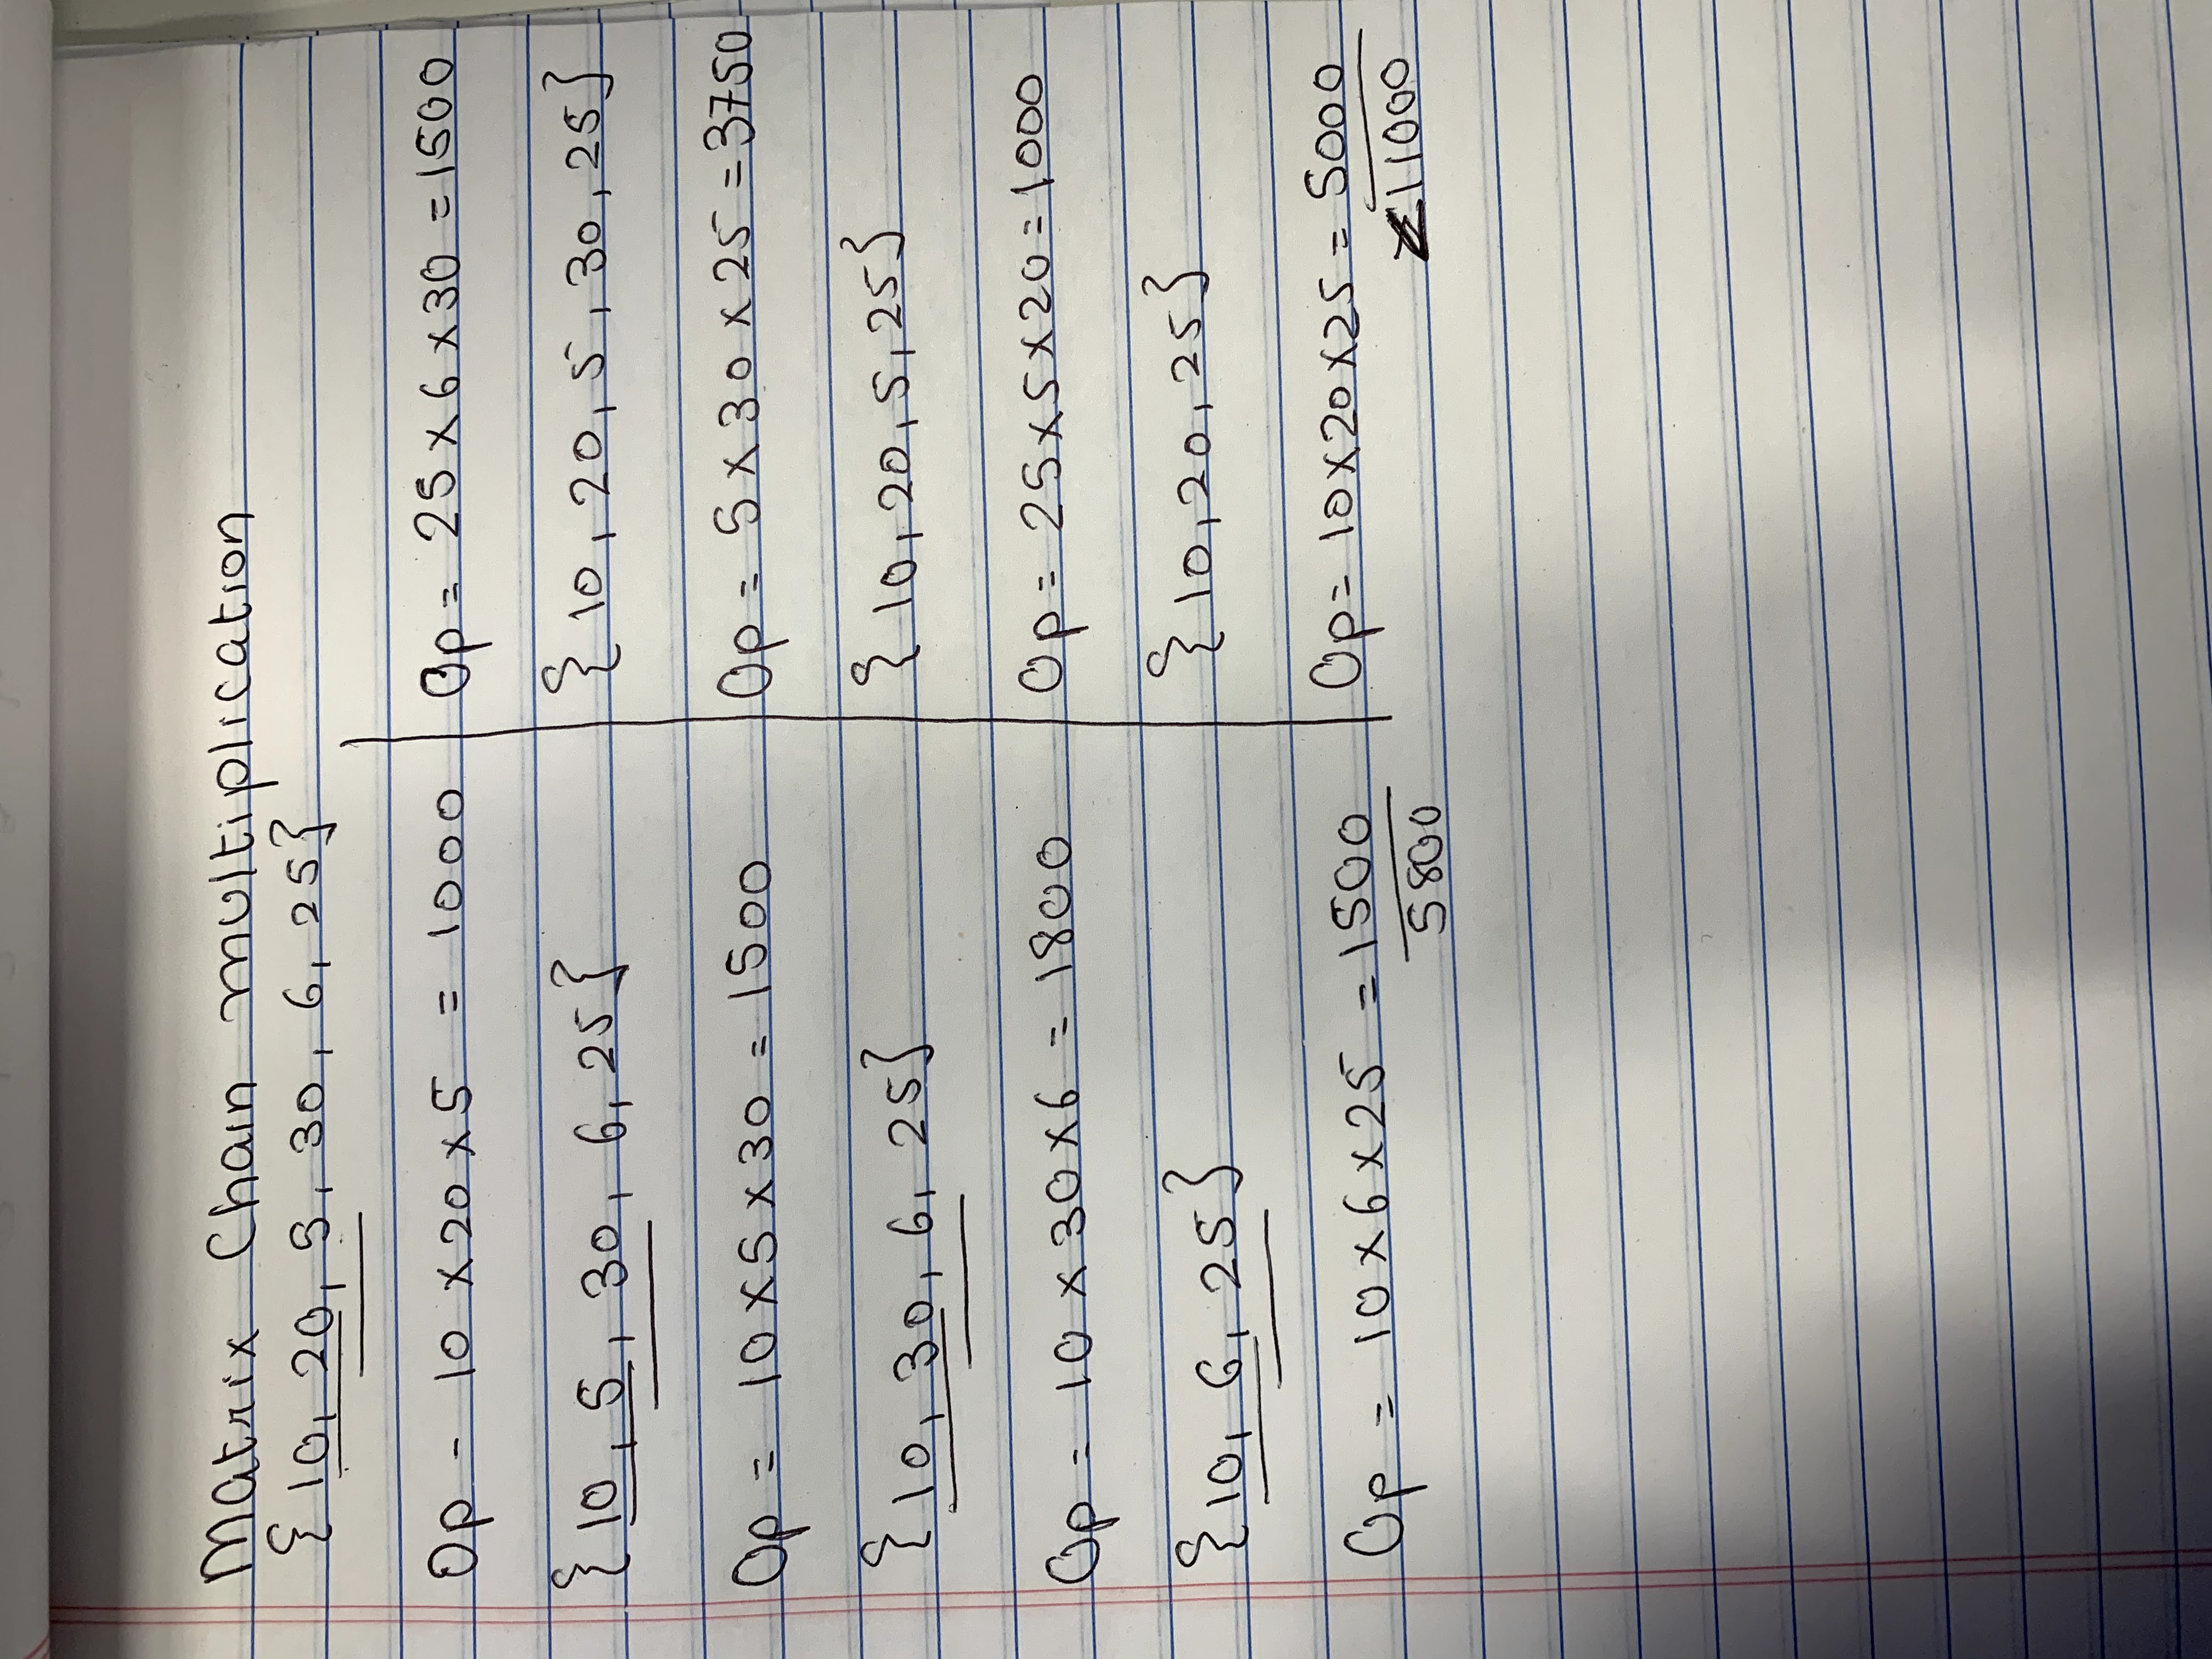 Matrix Chain multiplication
{10, 20, 5, 30, 6, 25}
Op - 10 x 20 x 5 = 1000
{10, 5, 30, 6, 25}
Op = 10 x 5 x 30 = 1500
{10, 30, 6, 25}
Op = 10 x 30 x 6 = 1800
{10, 6, 25}
Op = 10 x 6 x 25 = 1500
5800
Op = 25 x 6 x 30 = 1500
{10, 20, 5, 30, 25}
Op = 5 x 30 x 25 = 3750
{10, 20, 5, 25}
Op = 25 x 5 x 20 = 1000
{10, 20, 25}
Op = 10 x 20 x 25 = 5000
11000